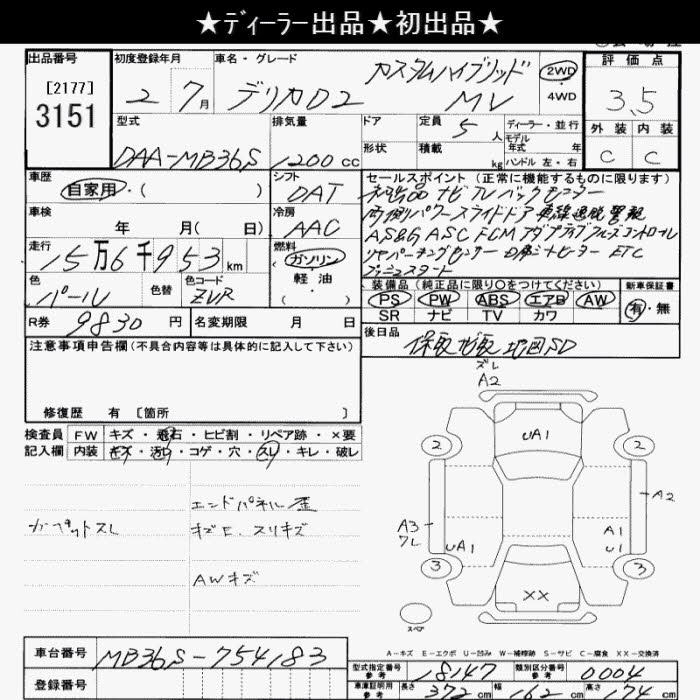 ★ディーラー出品★初出品★
出品番号 初度登録年月 車名・グレード 評価点
[2177]
3151
2 7月 デリカD2 カスタムハイブリッド MV 2WD ・ 4WD 3.5
型式 排気量 ドア 定員 5人 ディーラー・並行 外装 内装
DAA-MB36S 1200cc 形状 積載 kg モデル年式 年 C C
ハンドル 左・右
車歴 シフト セールスポイント(正常に機能するものに限ります)
自家用・( ) DAT 純正 ナビ TV バックモニター
車検 冷房 両側パワースライドドア 車線逸脱警報
年 月( 日) AAC AS&G ASC FCM アダプティブクルーズコントロール
走行 燃料 リヤパーキングセンサー D席シートヒーター ETC
15万6千953km ガソリン プッシュスタート
色 色替 色コード 軽油 装備品(純正品に限り○をつけてください) 新車保証書
パール ZVR ( ) PS PW ABS エアB AW 有・無
SR ナビ TV カワ
R券 9830円 名変期限 月 日 後日品
注意事項申告欄(不具合内容等は具体的に記入して下さい) 保取 ナビ取 地図SD
ズレ
A2
修復歴 有 [箇所 ]
検査員 FW キズ・飛石・ヒビ割・リペア跡・×要
記入欄 内装 キズ・汚れ・コゲ・穴・スレ・キレ・破レ
UA1
2 2
エンドパネル歪
カーペットスレ キズE、スリキズ
AWキズ
A2
A3
ワレ
UA1
A1
U1
3 3
XX
スペア
A-キズ E-エクボ U-凹み W-補修跡 S-サビ C-腐食 XX-交換済
車台番号 MB36S-754183
型式指定番号 参考 18147 類別区分番号 参考 0004
登録番号
車庫証明用 参考 長さ 372cm 幅 162cm 高さ 174cm